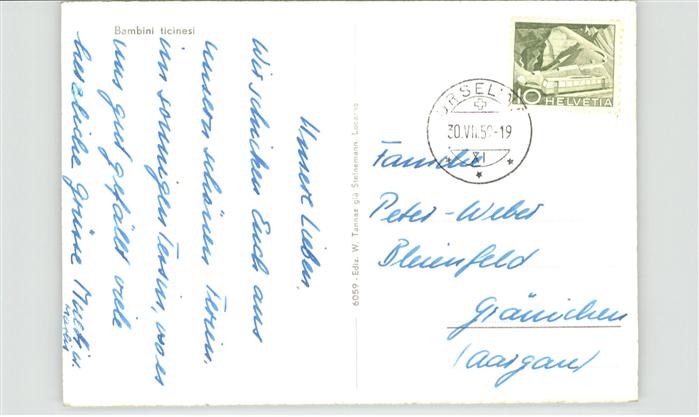 Bambini ticinesi
Unsere Lieben.
Wir schicken Euch aus
unsern schönen Ferien
im sonnigen Tessin, wo es
uns gut gefällt viele
herzliche Grüsse
6059 - Ediz. W. Tannaz già Steinemann, Locarno
10 HELVETIA
30.VII.59-19
Familie
Peter-Weber
Bleienfeld
Gränichen
(Aargau)